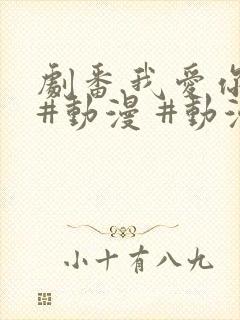 劇番我愛你
#動漫 #動漫
小十有八九